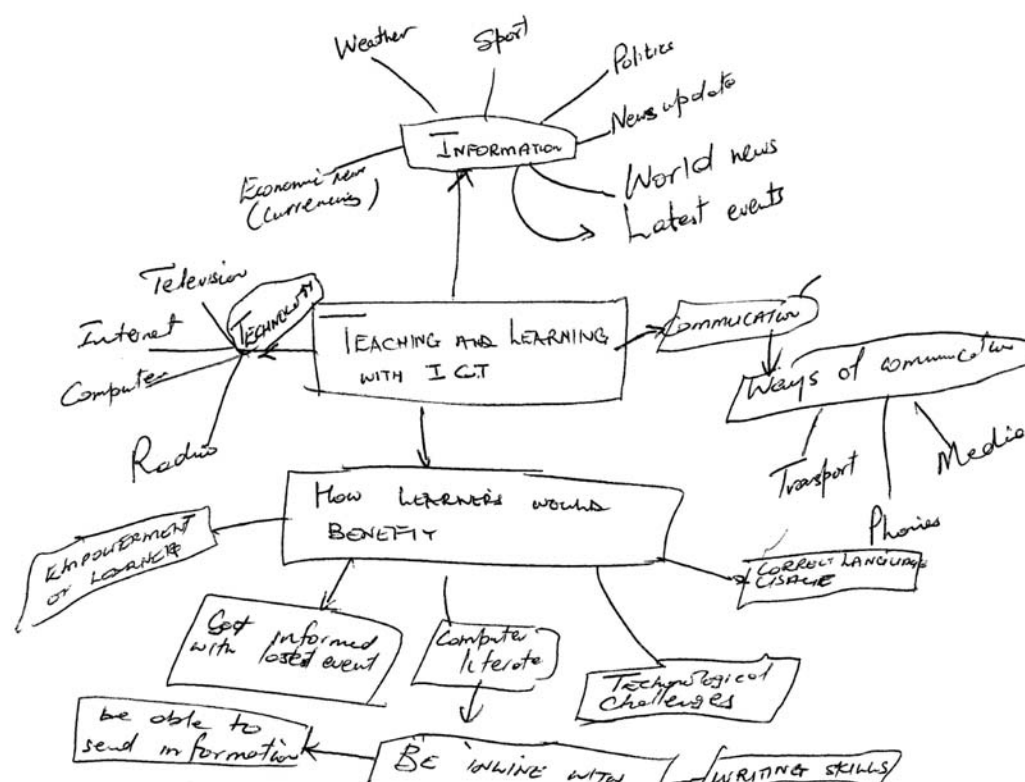 Weather
Sport
Politics
News update
INFORMATION
World news
Latest events
Economic news
(currencies)
Television
TECHNOLOGY
Internet
Computer
Radio
TEACHING AND LEARNING
WITH ICT
COMMUCATION
Ways of
Transport
Media
Phones
HOW LEARNERS WOULD
BENEFIT
EMPOWERMENT
OF LEARNERS
CORRECT LANGUAGE
USAGE
Get informed
with latest event
Computer
literate
Technological
challenges
be able to
send information
BE INLINE WITH
WRITING SKILLS